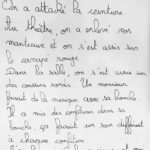 On a attaché la ceinture
Au théâtre, on a enlevé nos
manteaux et on s'est assis sur
le canapé rouge.
Dans la salle, on s'est assis sur
des coussins ronds. Un monsieur
faisait de la musique avec sa bouche.
Il a mis des confitures dans sa
bouche, ça faisait un son différent
à chaque confiture.